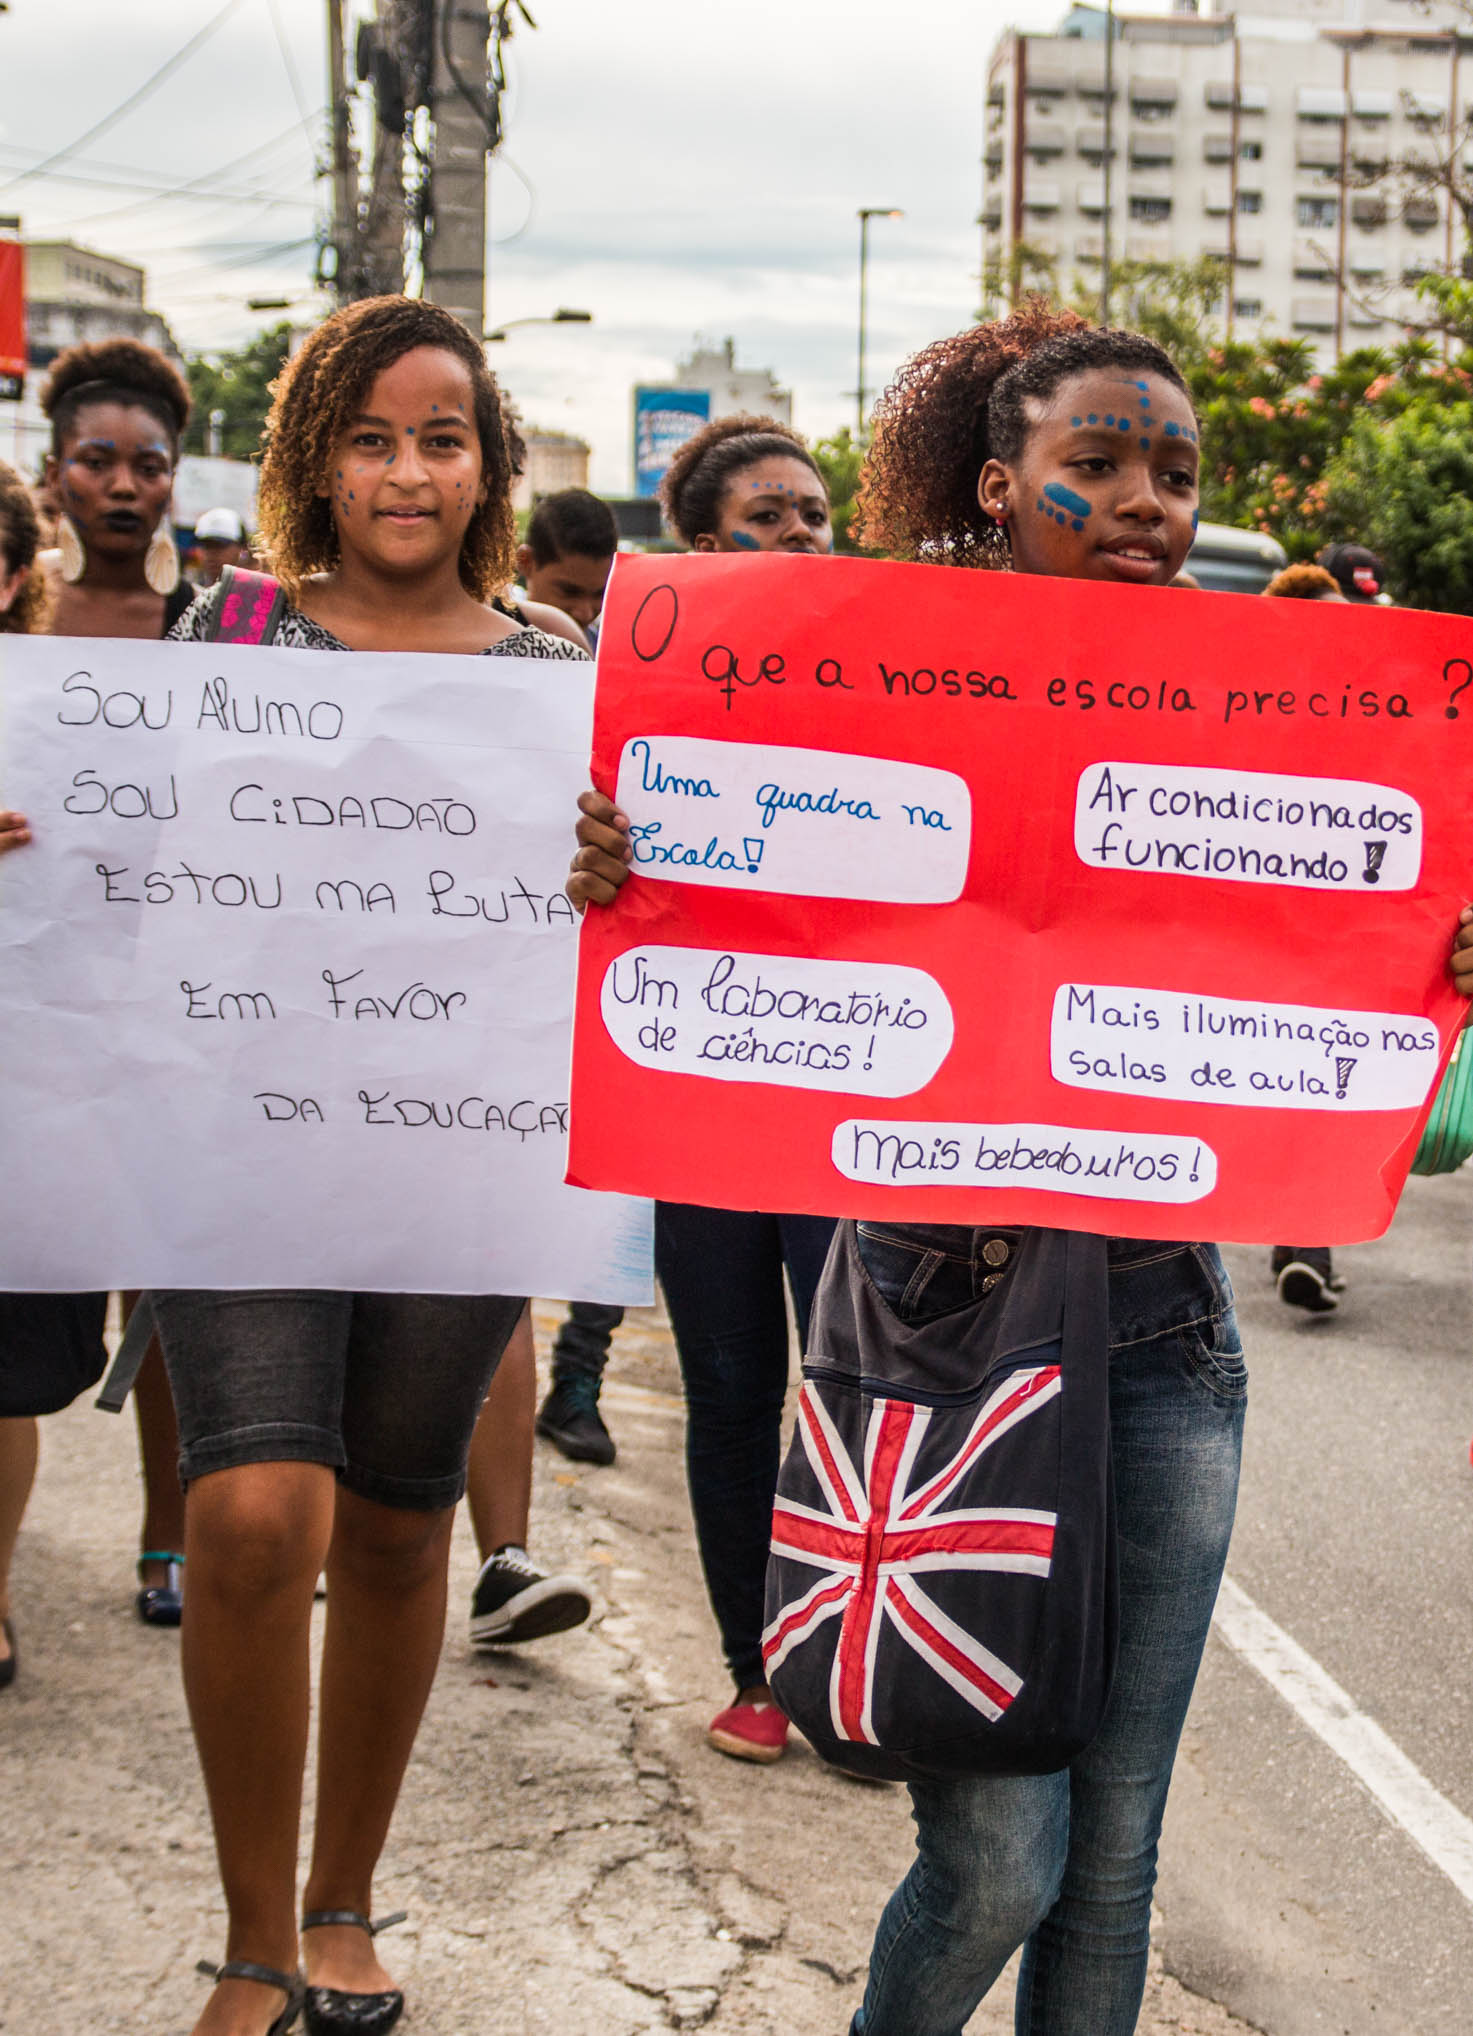 SOU ALUMO
SOU CiDADÃO
ESTOU MA LUTA
EM FAVOR
DA EDUCAÇÃO
O que a nossa escola precisa?
Uma quadra na
Escola!
Ar condicionados
funcionando!
Um laboratório
de ciências!
Mais iluminação nas
salas de aula!
Mais bebedouros!